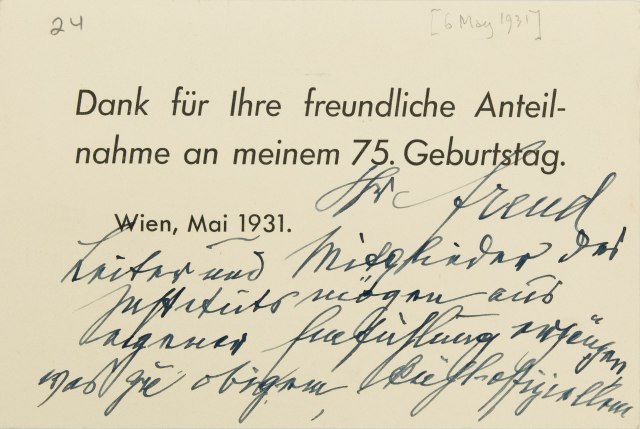 24
[6 May 1931]
Dank für Ihre freundliche Anteil-
nahme an meinem 75. Geburtstag.
Ihr Freud
Wien, Mai 1931.
Leiter und Mitglieder des
Instituts mögen aus
eigener Einfühlung ergänzen,
was zu obigem